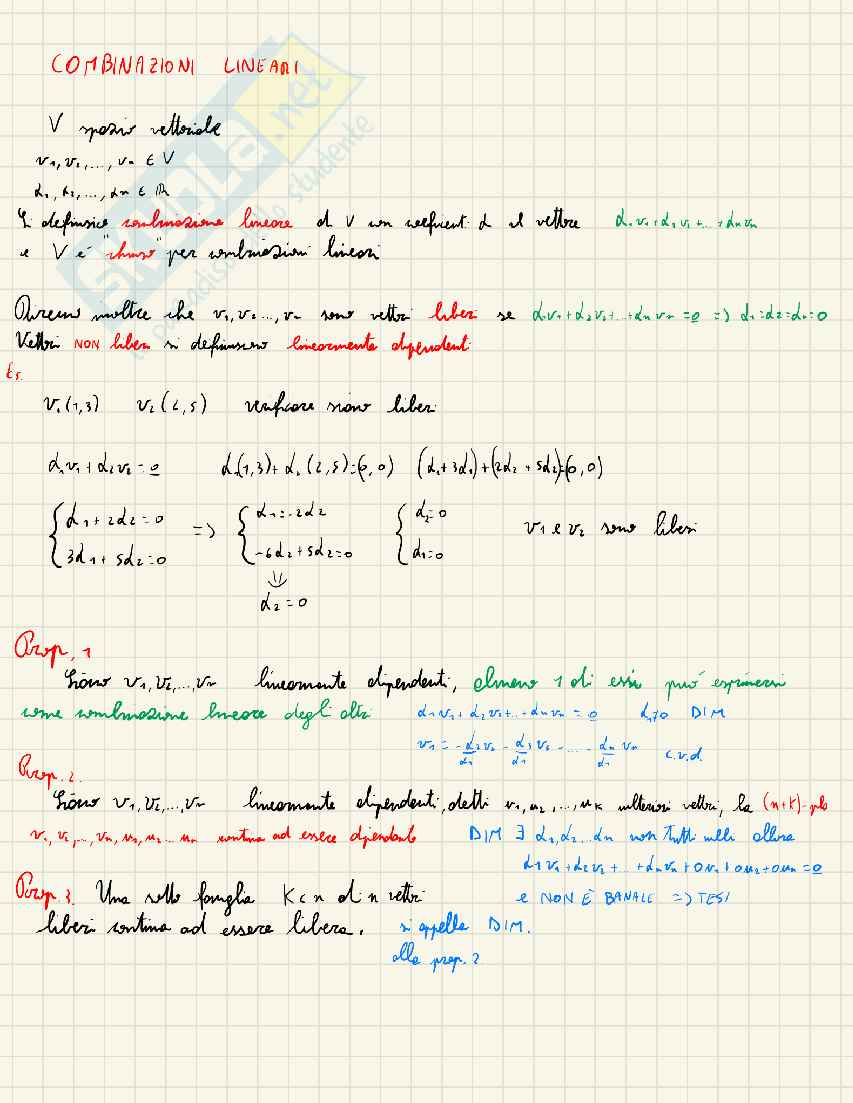 COMBINAZIONI LINEARI
V spazio vettoriale
v1, v2, ..., vn ∈ V
α1, α2, ..., αn ∈ ℝ
Si definisce combinazione lineare di V con coefficienti α il vettore α1v1+α2v2+...+αnvn
e V è "chiuso" per combinazioni lineari
Diremo inoltre che v1, v2 ..., vn sono vettori liberi se α1v1+α2v2+...+αnvn=0 => α1=α2=αn=0
Vettori NON liberi si definiscono linearmente dipendenti
Es.
v1(1,3) v2(2,5) verificare siano liberi
α1v1+α2v2=0 α1(1,3)+α2(2,5)=(0,0) (α1+3α1)+(2α2+5α2)=(0,0)
{α1+2α2=0 => {α1=-2α2 {α2=0 v1 e v2 sono liberi
{3α1+5α2=0 {-6α2+5α2=0 {α1=0
⇓
α2=0
Prop. 1
Siano v1, v2, ..., vn linearmente dipendenti, almeno 1 di essi può esprimersi
come combinazione lineare degli altri α1v1+α2v2+...+αnvn=0 α1≠0 DIM
v1=-α2/α1 v2-α3/α1 v2-...-αn/α1 vn c.v.d.
Prop. 2.
Siano v1, v2, ..., vn linearmente dipendenti, detti u1, u2, ..., uk ulteriori vettori, la (n+k)-pla
v1, v2, ..., vn, u1, u2 ... un continua ad essere dipendente DIM ∃ α1, α2 ... αn non tutti nulli allora
α1v1+α2v2+...+αnvn+0u1+0u2+0un=0
e NON È BANALE => TESI
Prop. 3. Una sotto famiglia K<n di n vettori
liberi continua ad essere libera. si appella DIM.
alla prop. 2
SKUOLA.net
paradiso dello studente